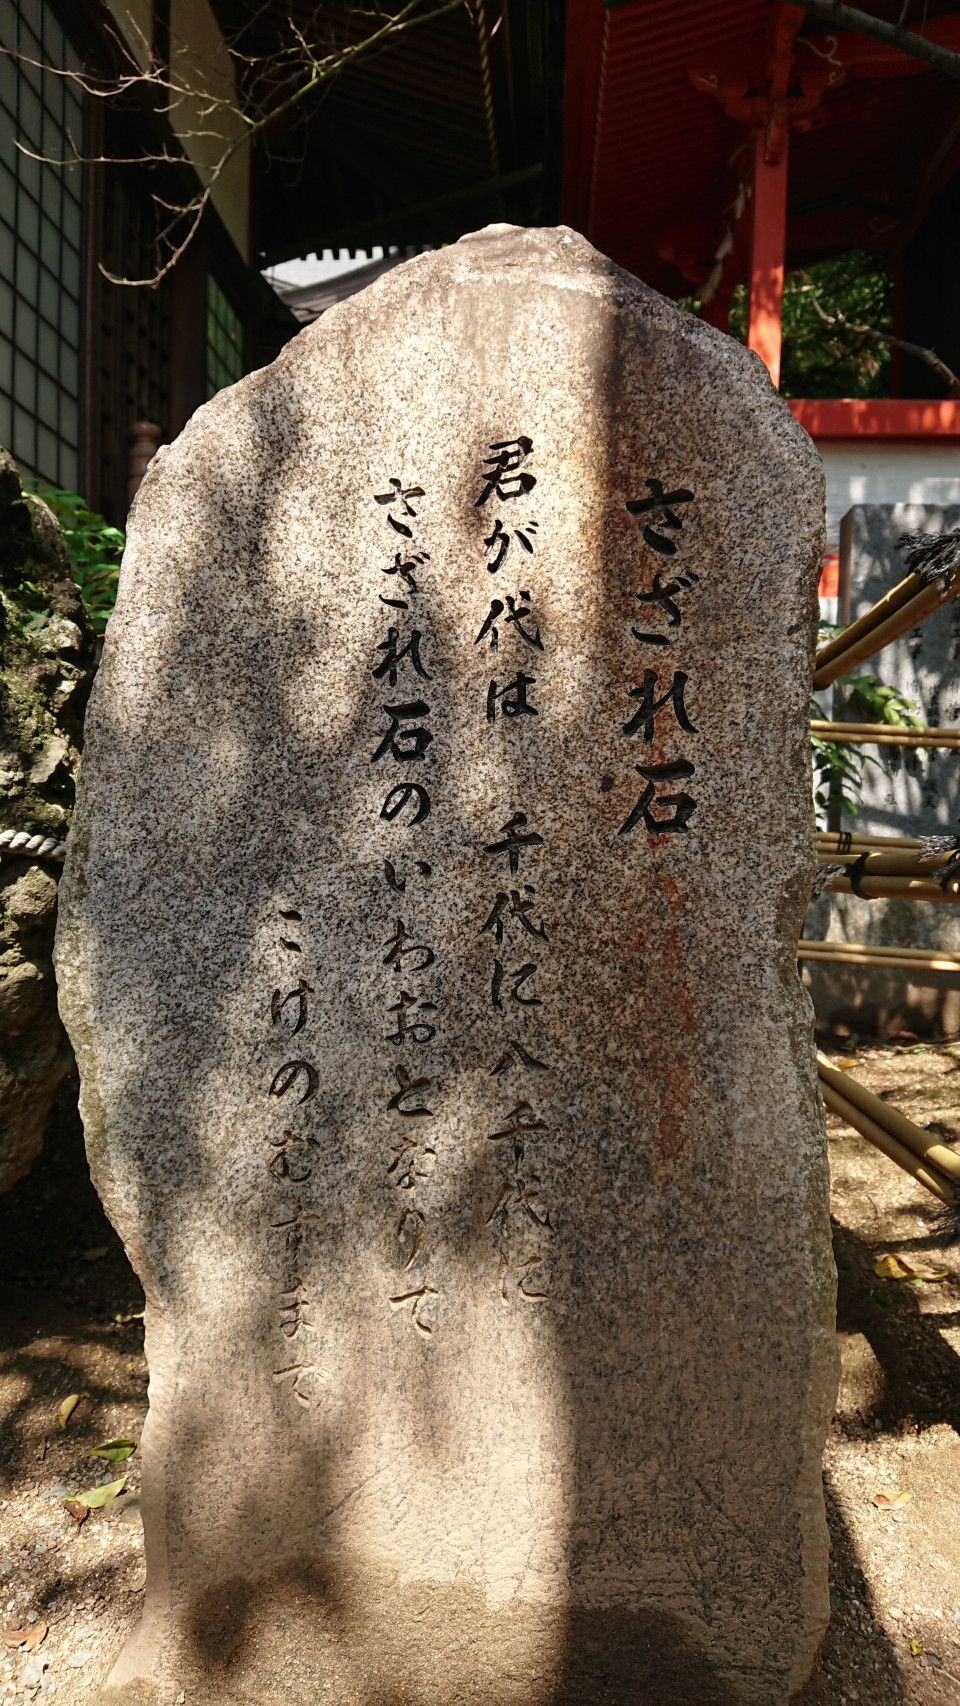 さざれ石
君が代は 千代に八千代に
さざれ石のいわおとなりて
こけのむすまで